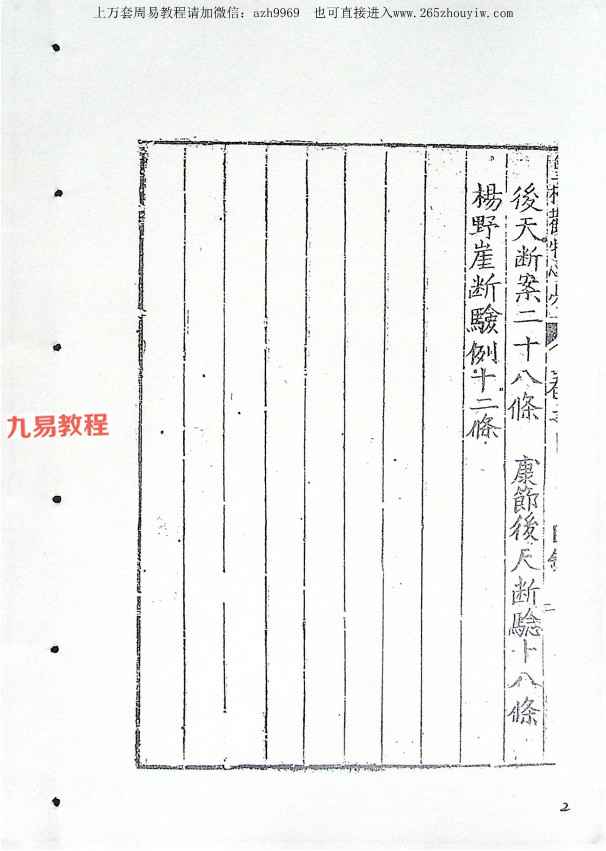 上万套周易教程请加微信：azh9969 也可直接进入www.265zhouyiw.com
後天断案二十八條 康節後天断騐十八條
楊野崖断驗例十二條
九易教程
2